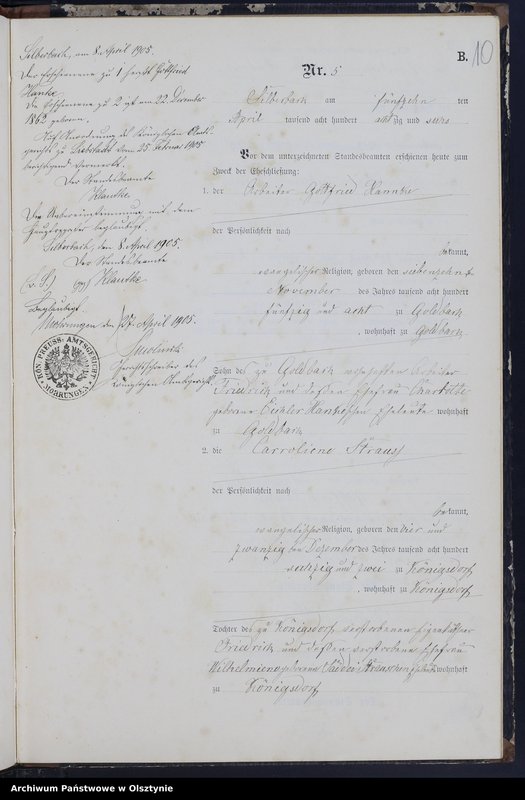 B. 10
Nr. 5
Silberbach am fünfzehn ten
April tausend acht hundert acht zig und sechs
Vor dem unterzeichneten Standesbeamten erschienen heute zum
Zweck der Eheschließung:
1. der Arbeiter Gottfried Hannke
der Persönlichkeit nach
bekannt,
evangelischer Religion, geboren den siebenzehnten
November des Jahres tausend acht hundert
fünfzig und acht zu Goldbach
, wohnhaft zu Goldbach
Sohn des zu Goldbach Arbeiter
Friedrich und dessen Ehefrau Charlotte
geborener Hankeschen Eheleute wohnhaft
zu Goldbach
2. die Carroliene Strauss
der Persönlichkeit nach
bekannt,
evangelischer Religion, geboren den vier und
zwanzigsten Dezember des Jahres tausend acht hundert
sechzig und zwei zu Königsdorf
, wohnhaft zu Königsdorf
Tochter des zu Königsdorf verstorbenen
Friedrich und dessen verstorbene Ehefrau
Wilhelmiene geborene wohnhaft
zu Königsdorf
Silberbach, am 8. April 1905.
Der Erschienene zu 1 heißt Gottfried
Hanke.
Die Erschienene zu 2 ist am 22. Dezember
1862 geboren.
Auf Anordnung des Königlichen Amts-
gerichts zu Liebstadt vom 25. Februar 1905
berichtigend vermerkt.
Der Standesbeamte
Klautke
Die Uebereinstimmung mit dem
Hauptregister beglaubigt.
Silberbach, den 8. April 1905.
Der Standesbeamte
(L. S.) gez. Klautke
Beglaubigt
Mohrungen den April 1905.
Gerichtsschreiber des
Königlichen Amtsgerichts.
KÖN. PREUSS. AMTSGERICHT
MOHRUNGEN
Archiwum Państwowe w Olsztynie